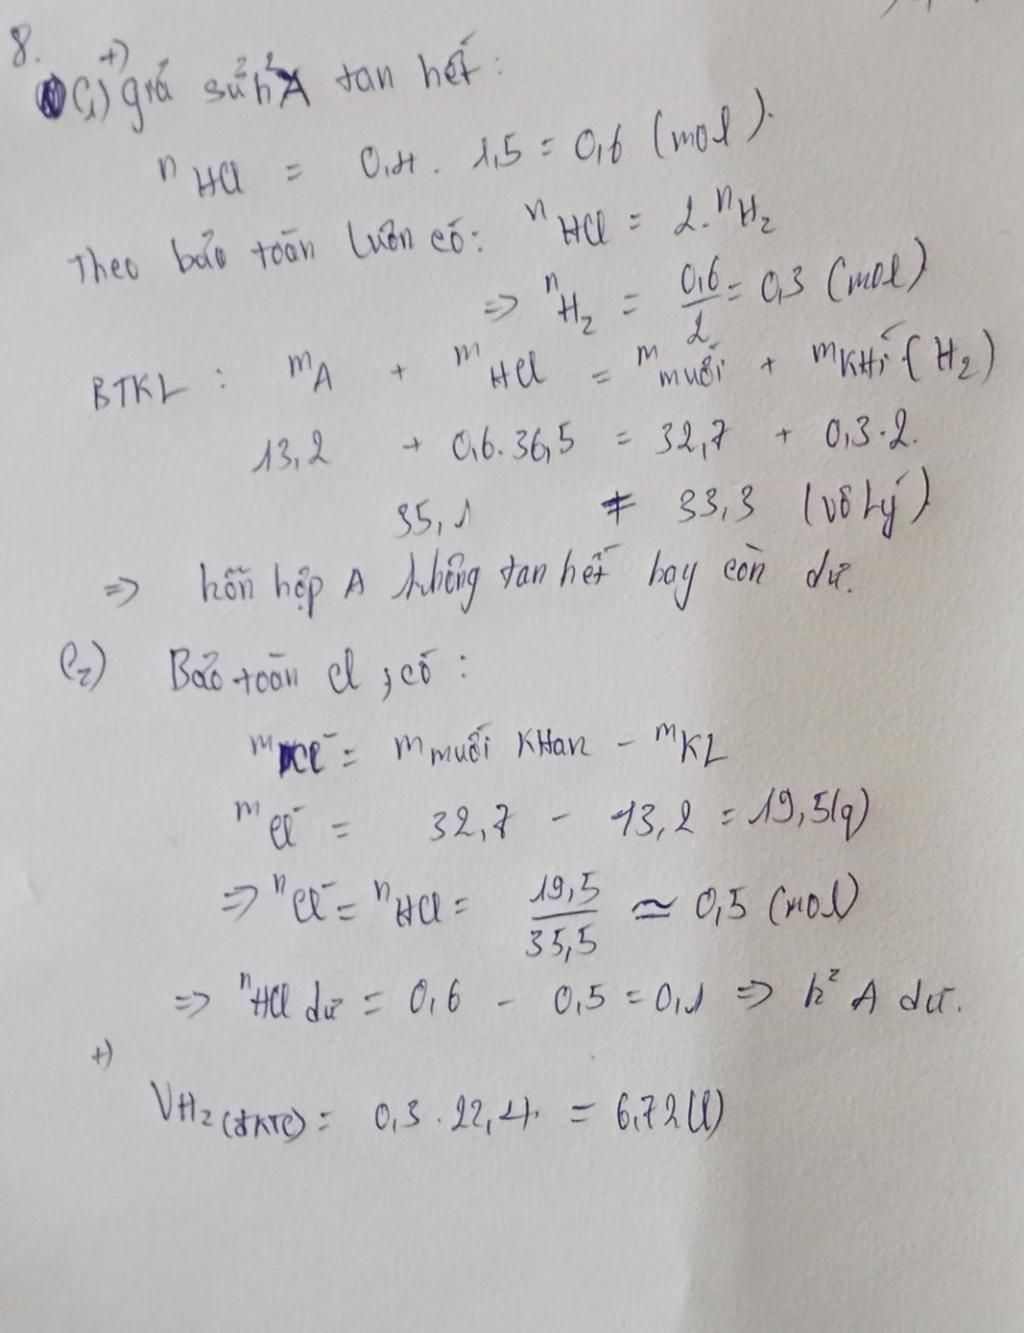 8.
C₁) +) giả sử h² A tan hết:
nHCl = 0,4 . 1,5 = 0,6 (mol).
Theo bảo toàn luôn có: nHCl = 2.nH₂
=> nH₂ = 0,6/2 = 0,3 (mol)
BTKL : mA + mHCl = m muối + mKHí (H₂)
13,2 + 0,6.36,5 = 32,7 + 0,3.2.
35,1 ≠ 33,3 (vô lý)
=> hỗn hợp A không tan hết hay còn dư.
C₂) Bảo toàn Cl, có :
mCl⁻ = m muối KHan - mKL
mCl⁻ = 32,7 - 13,2 = 19,5(g)
=> nCl⁻ = nHCl = 19,5/35,5 ≃ 0,5 (mol)
=> nHCl dư = 0,6 - 0,5 = 0,1 => h² A dư.
+)
VH₂(đKTC) = 0,3 . 22,4 = 6,72(l)